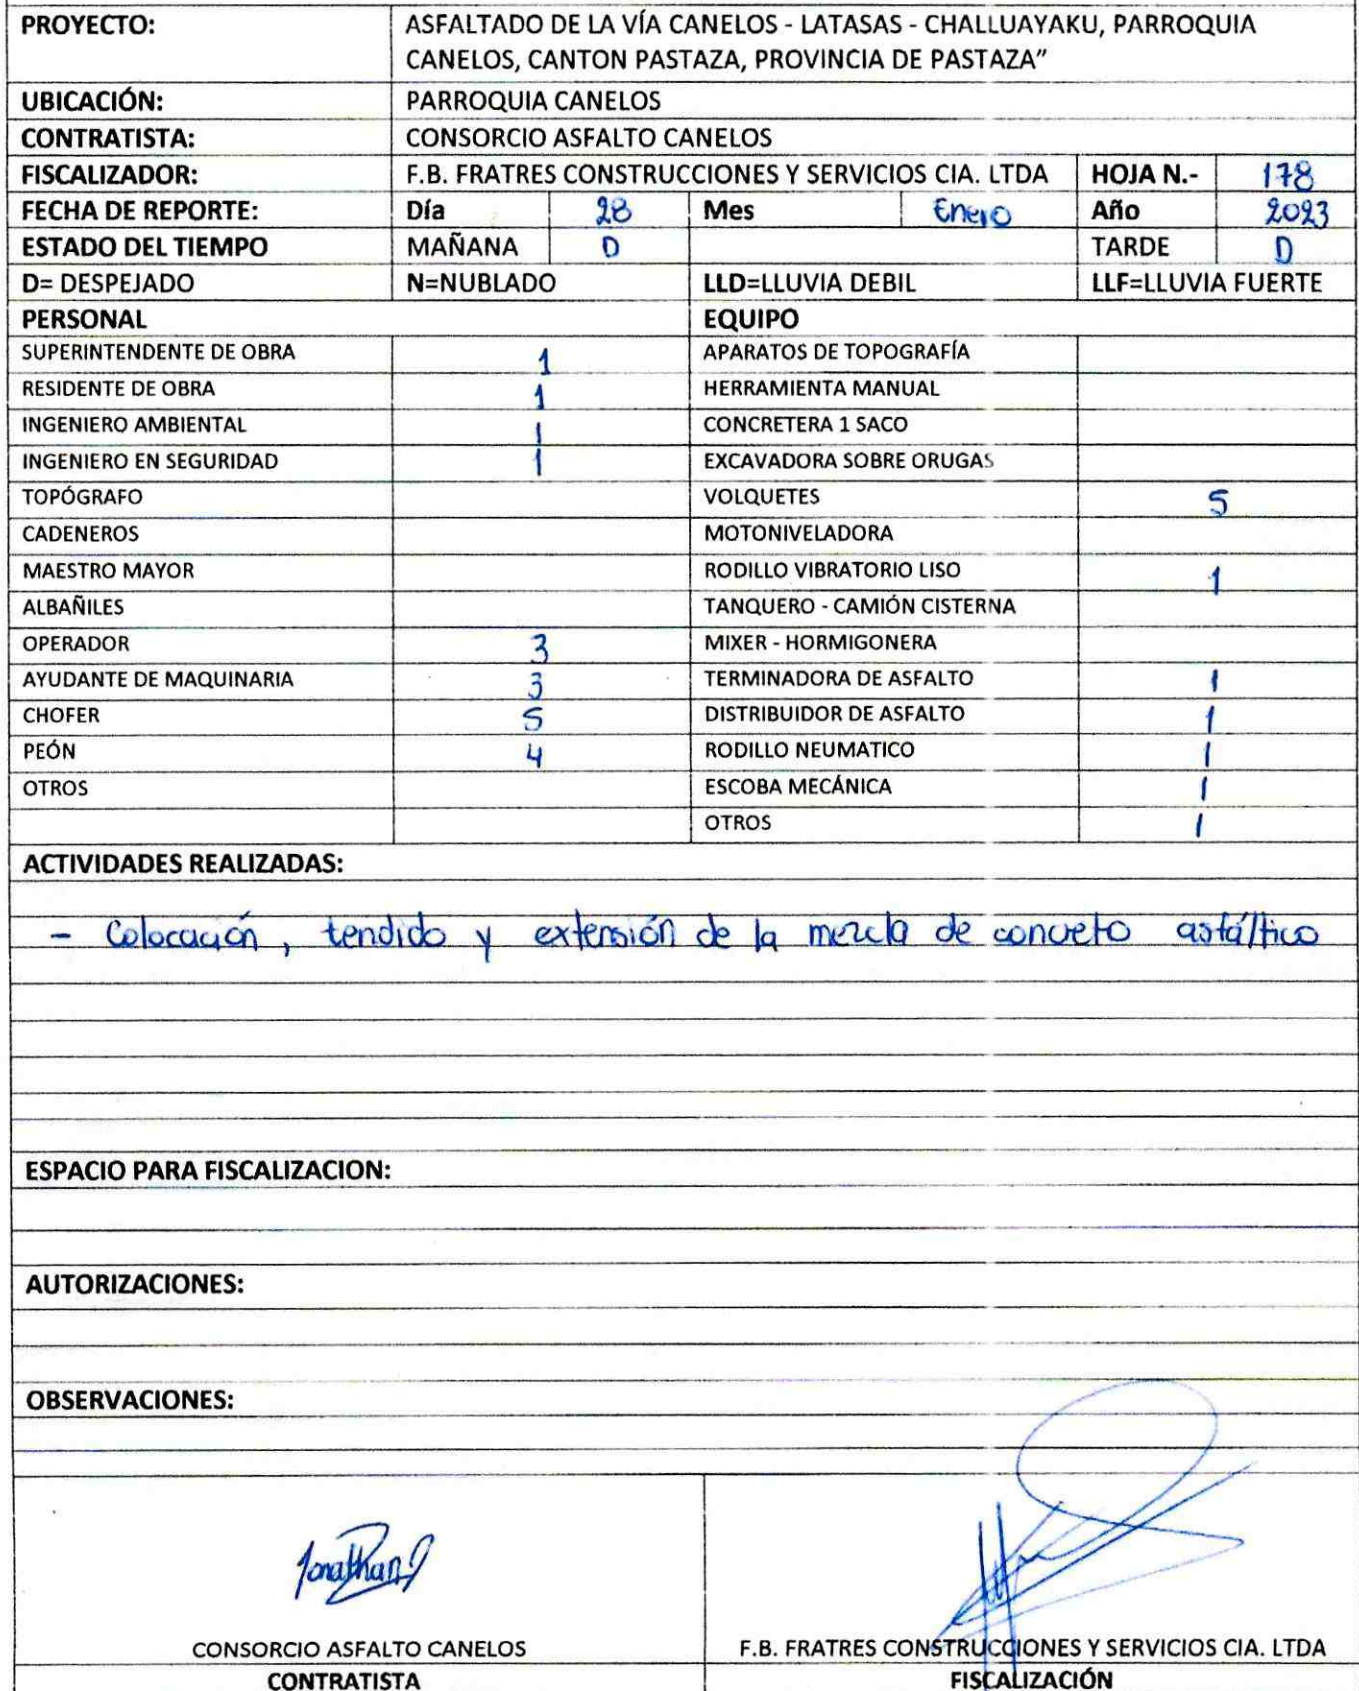 PROYECTO: ASFALTADO DE LA VÍA CANELOS - LATASAS - CHALLUAYAKU, PARROQUIA
CANELOS, CANTON PASTAZA, PROVINCIA DE PASTAZA”
UBICACIÓN: PARROQUIA CANELOS
CONTRATISTA: CONSORCIO ASFALTO CANELOS
FISCALIZADOR: F.B. FRATRES CONSTRUCCIONES Y SERVICIOS CIA. LTDA HOJA N.- 178
FECHA DE REPORTE: Día 28 Mes Enero Año 2023
ESTADO DEL TIEMPO MAÑANA D TARDE D
D= DESPEJADO N=NUBLADO LLD=LLUVIA DEBIL LLF=LLUVIA FUERTE
PERSONAL EQUIPO
SUPERINTENDENTE DE OBRA 1 APARATOS DE TOPOGRAFÍA
RESIDENTE DE OBRA 1 HERRAMIENTA MANUAL
INGENIERO AMBIENTAL 1 CONCRETERA 1 SACO
INGENIERO EN SEGURIDAD 1 EXCAVADORA SOBRE ORUGAS
TOPÓGRAFO VOLQUETES 5
CADENEROS MOTONIVELADORA
MAESTRO MAYOR RODILLO VIBRATORIO LISO 1
ALBAÑILES TANQUERO - CAMIÓN CISTERNA
OPERADOR 3 MIXER - HORMIGONERA
AYUDANTE DE MAQUINARIA 3 TERMINADORA DE ASFALTO 1
CHOFER 5 DISTRIBUIDOR DE ASFALTO 1
PEÓN 4 RODILLO NEUMATICO 1
OTROS ESCOBA MECÁNICA 1
OTROS 1
ACTIVIDADES REALIZADAS:
- Colocación, tendido y extensión de la mezcla de concreto asfáltico
ESPACIO PARA FISCALIZACION:
AUTORIZACIONES:
OBSERVACIONES:
Jonathan
CONSORCIO ASFALTO CANELOS F.B. FRATRES CONSTRUCCIONES Y SERVICIOS CIA. LTDA
CONTRATISTA FISCALIZACIÓN